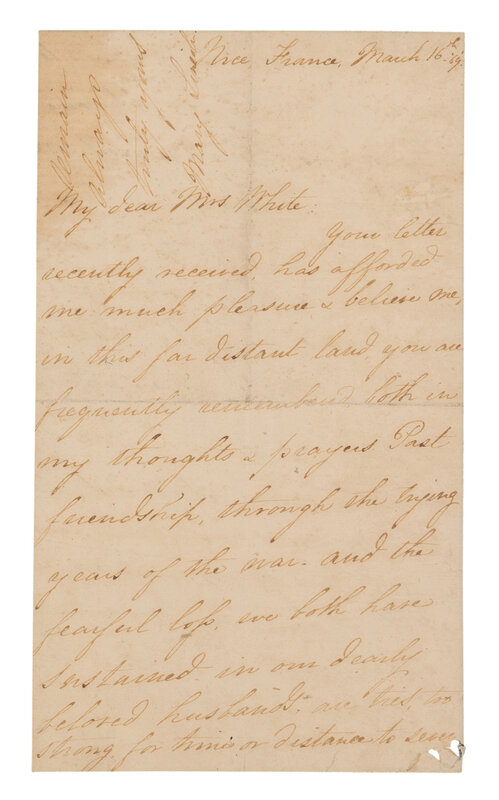 Nice, France, March 16th '69.
My dear Mrs White.
Your letter
recently received, has afforded
me much pleasure & believe me,
in this far distant land, you are
frequently remembered, both in
my thoughts & prayers Past
friendship, through the trying
years of the war. and the
fearful loss, we both have
sustained in our dearly
beloved husbands, are ties, too
strong for time or distance to sever
remain
always
truly yours
Mary Lincoln